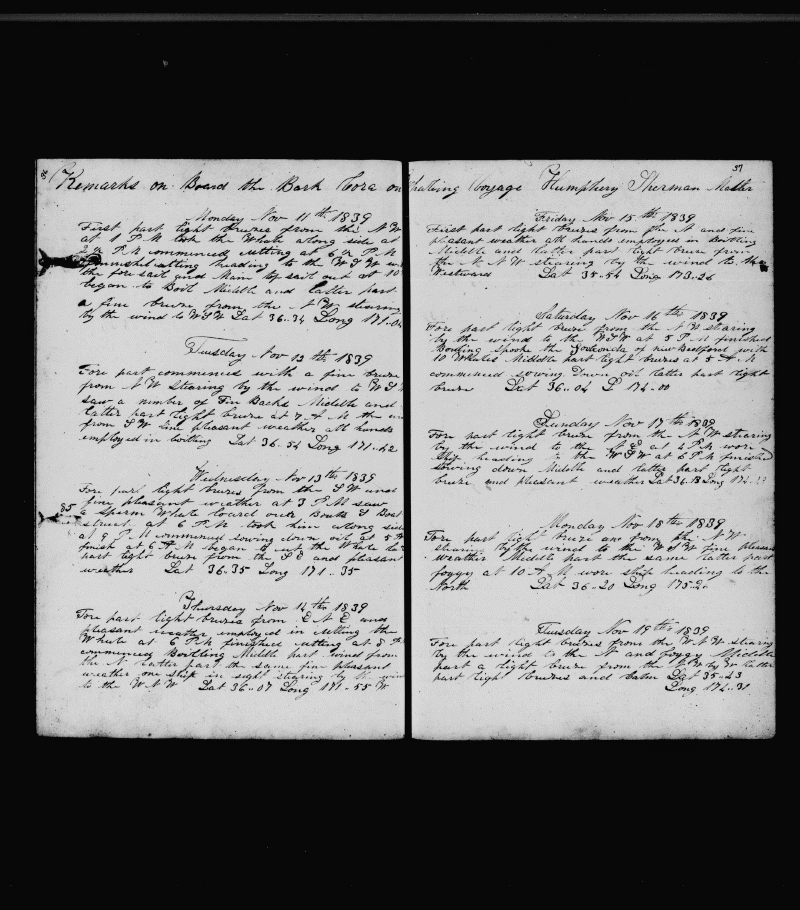 Remarks on Board the Bark Cora on
Monday Nov 11th 1839
First part light breezes from the N W
at 1 P M took the Whale along side at
2 P M commenced cutting at 6 P M
finished cutting heading to the W S W
the fore sail and Main top sail out at 10
began to Boil Middle and latter part
a fine breeze from the N W stearing
by the wind to W S W Lat 36..34 Long 171..04
Tuesday Nov 12th 1839
Fore part commences with a fine breeze
from N W stearing by the wind to W S W
saw a number of Fin Backs Middle and
latter part light breeze at 7 A M the
from S W fine pleasant weather all hands
employed in boiling Lat 36..54 Long 171..42
Wednesday Nov 13th 1839
Fore part light breezes from the S W and
fine pleasant weather at 3 P M saw
85 a Sperm Whale loard over Boats S Boat
struck at 6 P M took him along side
at 9 P M commenced sowing down oil at 5
finish at 6 A M began to cut the Whale
part light breeze from the S E and pleasant
weather Lat 36..35 Long 171..35
Thursday Nov 14th 1839
Fore part light breezes from E N E and
pleasant weather employed in cutting the
Whale at 6 P M finished cutting at 8 P
commenced Boitling Middle part wind from
the N latter part the same fine pleasant
weather one ship in sight stearing by the wind
to the W N W Lat 36..07 Long 171..55 W
37
Whaleing Voyage Humphery Sherman Master
Friday Nov 15th 1839
First part light breezes from the N and fine
pleasant weather all hands employed in Boitling
Middle and latter part light breeze from
the N N W stearing by the wind to the
Westward Lat 35-54 Long 173-26
Saturday Nov 16th 1839
Fore part light breeze from the N W stearing
by the wind to the W S W at 5 P M finished
Boiling Spoke the Golconda of new Bedford with
10 Whales Middle part light breezes at 5 A M
commenced sowing Down oil latter part light
breeze Lat 36-04 L 174-00
Sunday Nov 17th 1839
Fore part light breeze from the N W stearing
by the wind to the N E at 4 P M wore
Ship heading to the W S W at 6 P M finished
sowing down Middle and latter part light
breeze and pleasant weather Lat 36.18 Long 174..
Monday Nov 18th 1839
Fore part light breeze and from the N W
stearing by the wind to the W S W fine pleasant
weather Middle part the same latter part
foggy at 10 A M wore ship heading to the
North Lat 36-20 Long 175-20
Tuesday Nov 19th 1839
Fore part light breezes from the W N W stearing
by the wind to the N and foggy Middle
part a light breeze from the N W by W latter
part light breezes and calm Lat 35..43
Long 174..31